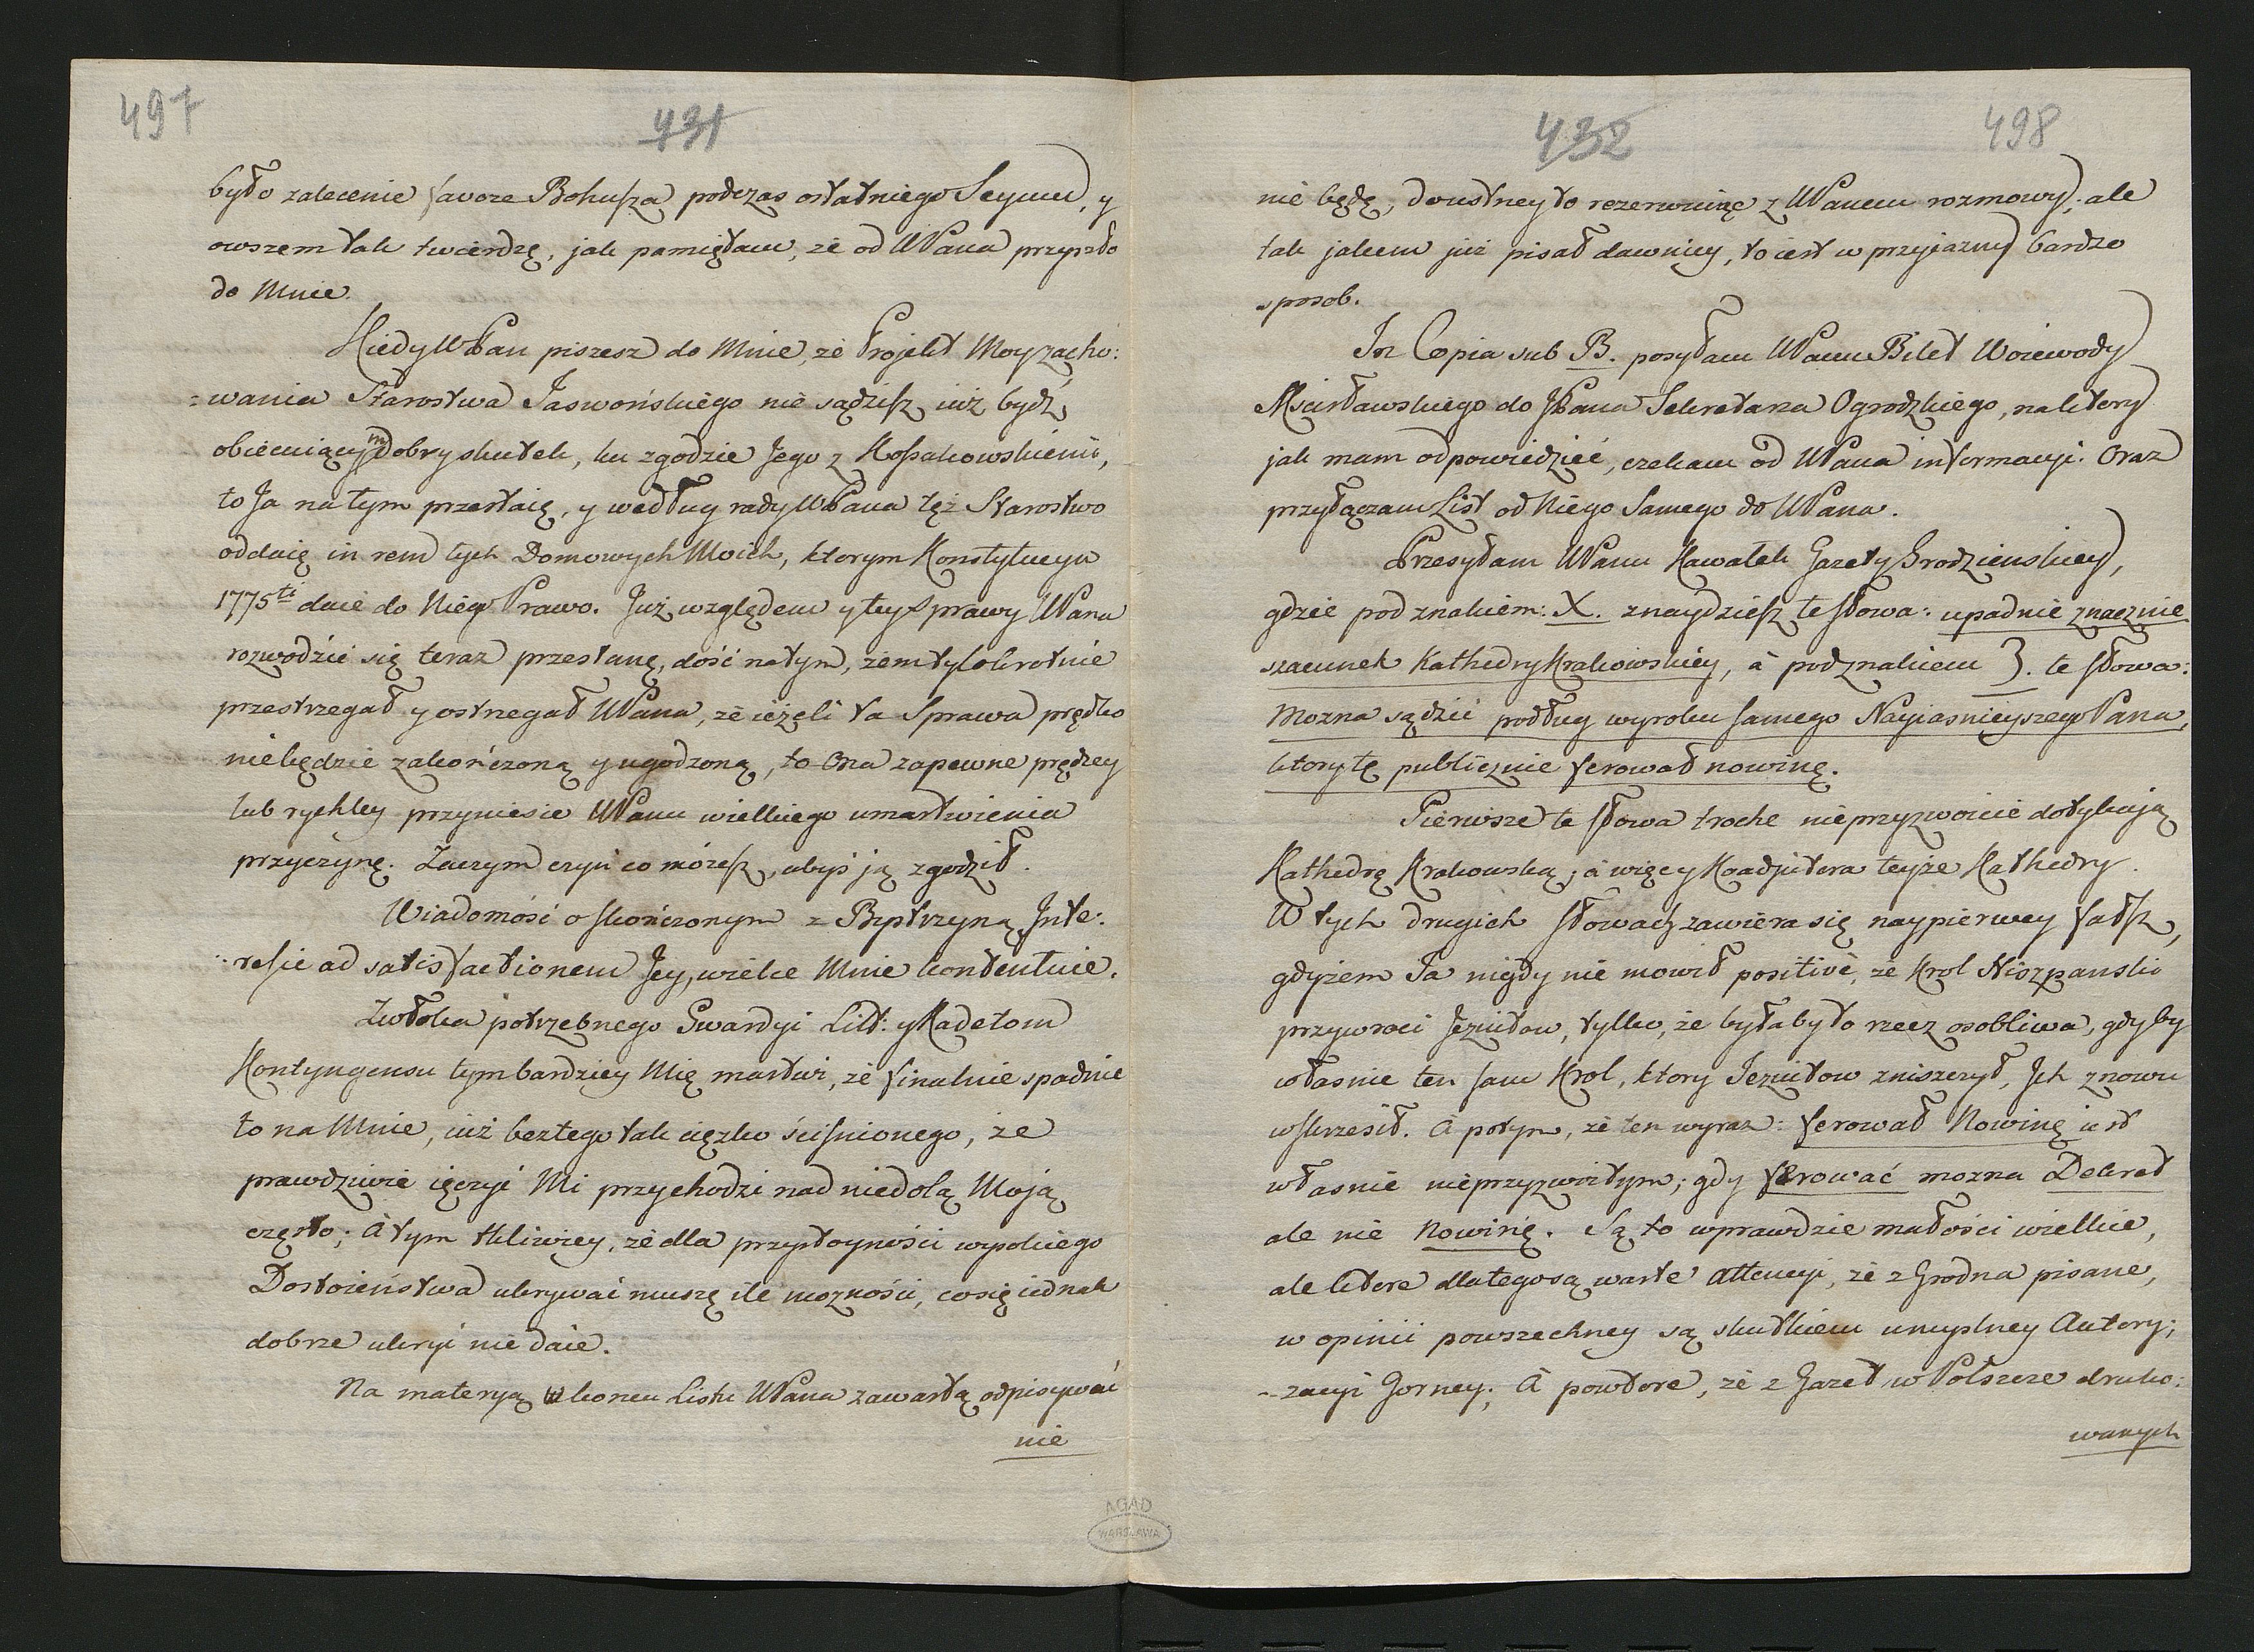 497
431
było zalecenie favore Bohusza podczas ostatniego Seymu, y
owszem tak twierdzę, jak pamiętam, że od WPana przyszło
do Mnie.
Kiedy WPan piszesz do Mnie, że Projekt Moy zacho:
:wania Starostwa Jaswońskiego nie sądzisz iuż bydź
obiecuiącym dobry skutek, ku zgodzie Jego z Kossakowskiemi,
to Ja na tym przestaię, y według rady WPana też Starostwo
oddaię in rem tych Domowych Moich, ktorym Konstytucya
1775ti daie do Niego Prawo. Już względem y tey Sprawy WPanu
rozwodzić się teraz przestanę, dość na tym, żem tylokrotnie
przestrzegał y ostrzegał WPana, że ieżeli ta Sprawa prędko
nie będzie zakończoną y ugodzoną, to Ona zapewne prędzey
lub rychley przyniesie WPanu wielkiego umartwienia
przyczynę. Zaczym czyń co możesz, abyś ją zgodził.
Wiadomość o skończonym z Bystrzyną Inte:
:ressie ad satisfactionem Jey, wielce Mnie kontentuie.
Zwłoka potrzebnego Gwardyi Litt: y Kadetom
Kontyngensu tym bardziey Mię martwi, że finalnie spadnie
to na Mnie, iuż bez tego tak ciężko ściśnionego, że
prawdziwie ięczyć Mi przychodzi nad niedolą Moją
często; A tym tkliwiey, że dla przystoyności wysokiego
Dostoieństwa ukrywać muszę ile możności, co się iednak
dobrze ukryć nie daie.
Na materyą w koncu Listu WPana zawartą odpisywać
nie
432
498
nie będę, doustney to rezerwuię z WPanem rozmowy; ale
tak jakem już pisał dawniey, to iest w przyjazny bardzo
sposob.
In Copia sub B. posyłam WPanu Bilet Woiewody
Mscisławskiego do JPana Sekretarza Ogrodzkiego, na ktory
jak mam odpowiedzieć, czekam od WPana informacyi. Oraz
przyłączam List od Niego Samego do WPana.
Przesyłam WPanu Kawałek Gazety Grodzienskiey,
gdzie pod znakiem: X. znaydziesz te słowa: upadnie znacznie
szacunek Kathedry Krakowskiey, à pod znakiem 3. te słowa:
Mozna sądzić podług wyroku samego Nayiasnieyszego Pana,
ktory tę publicznie ferował nowinę.
Pierwsze te słowa troche nieprzyzwoicie dotykają
Kathedrę Krakowską, à więc y Koadjutora teyże Kathedry.
W tych drugich słowach zawiera się naypierwey fałsz,
gdyżem Ja nigdy nie mowił positivè, że Krol Niszpanski
przywroci Jezuitow, tylko, że byłaby to rzecz osobliwa, gdyby
własnie ten sam Krol, ktory Jezuitow zniszczył, Jch znowu
wskrzesił. A potym, że ten wyraz: ferował Nowinę iest
własnie nieprzyzwoitym; gdy ferować mozna Dekret
ale nie Nowinę. Są to wprawdzie małości wielkie,
ale ktore dlatego są warte attencyi, że z Grodna pisane,
w opinii powszechney są skutkiem umyslney Autory;
:zacyi Gorney; A powtore, że z Gazet w Polszcze druko:
wanych
AGAD
WARSZAWA